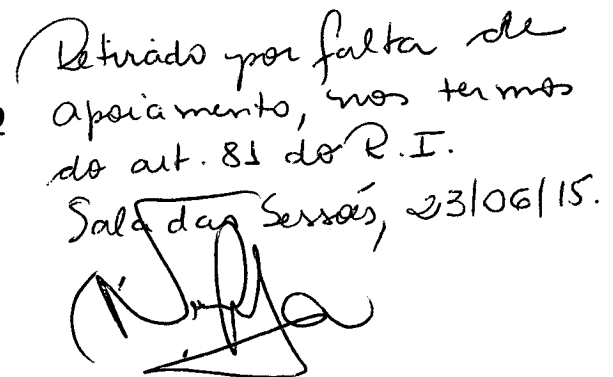 Retirado por falta de
apoiamento, nos termos
do art. 81 do R.I.
Sala das Sessões, 23/06/15.